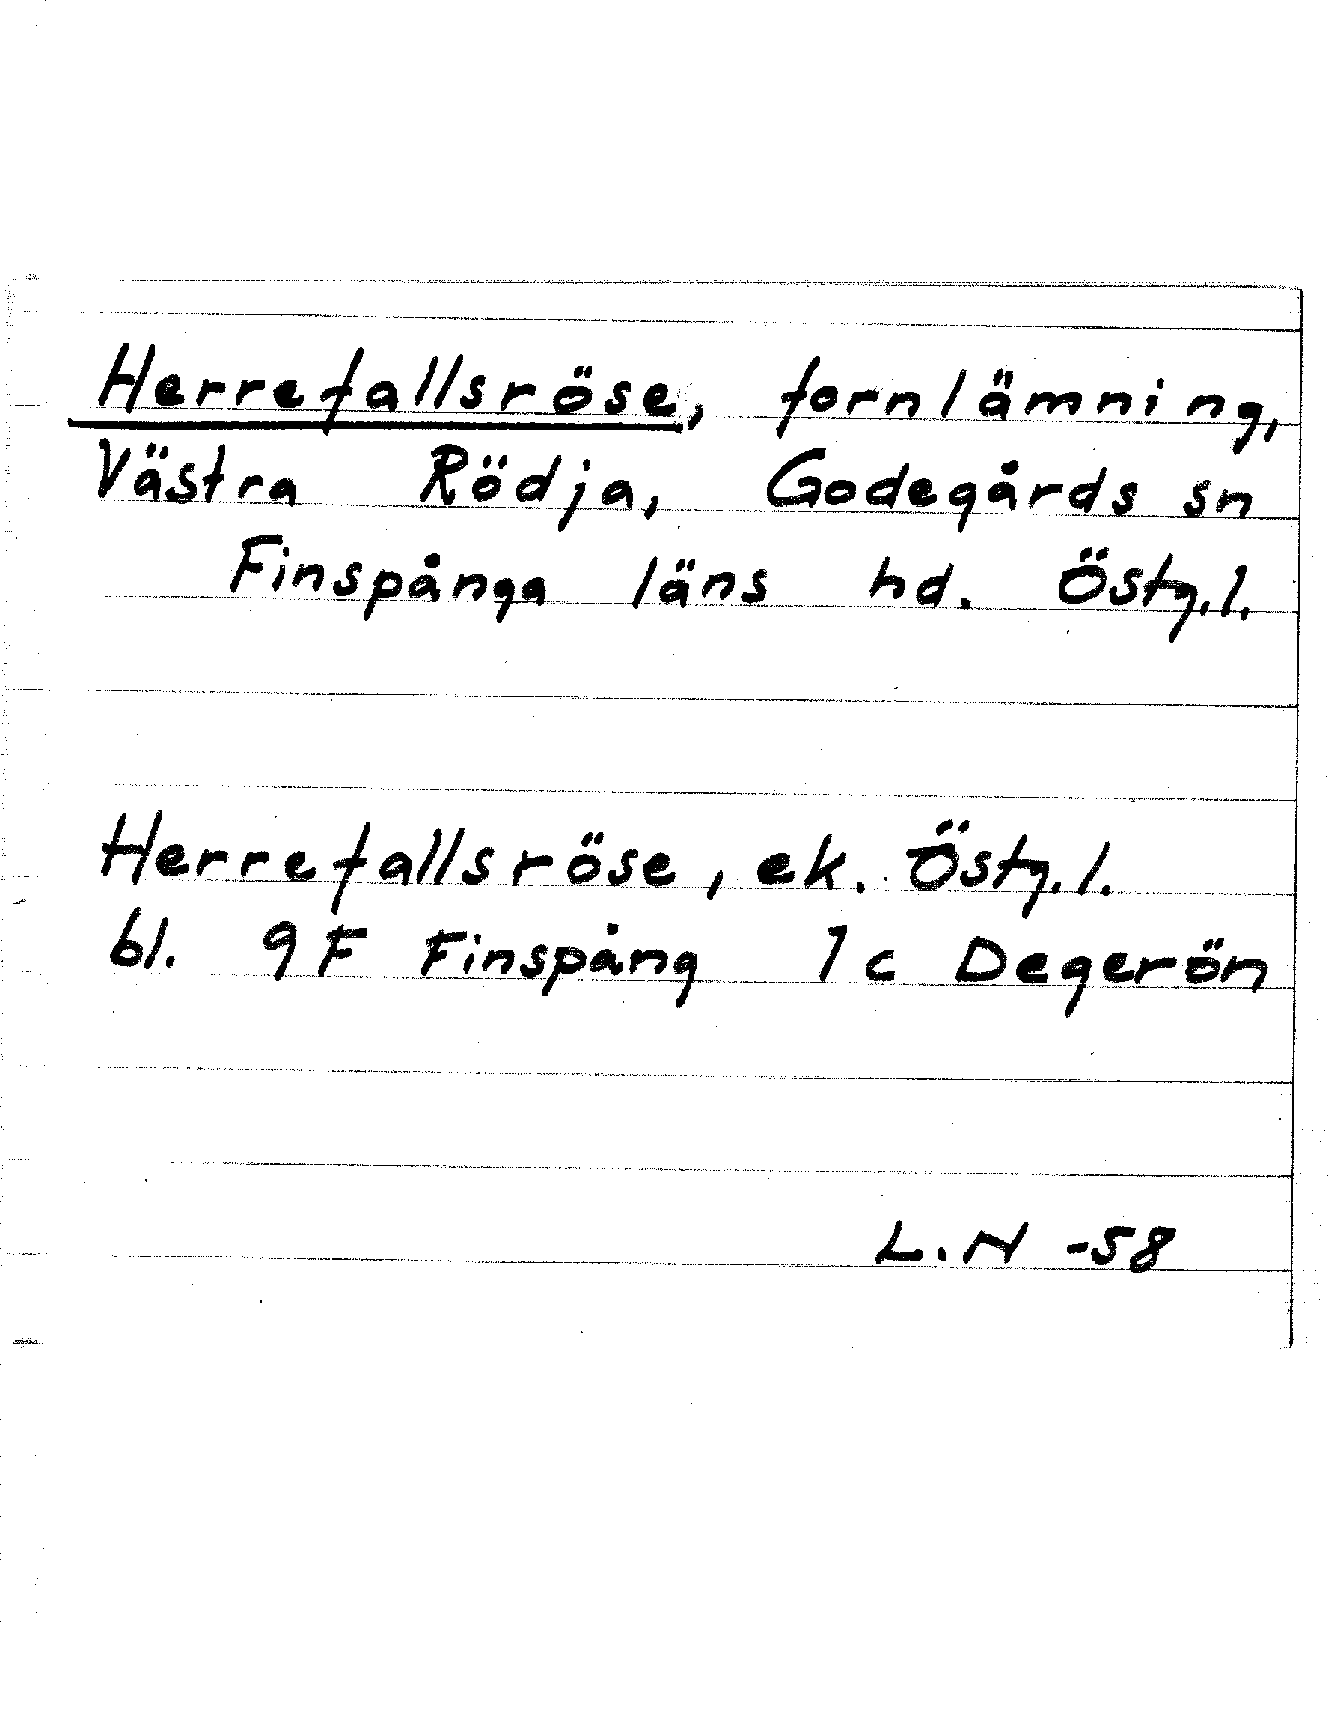 Herrefallsröse, fornlämning,
Västra Rödja, Godegårds sn
Finspånga läns hd. Östg.l.
Herrefallsröse, ek. Östg.l.
bl. 9F Finspång 1c Degerön
L.N -58